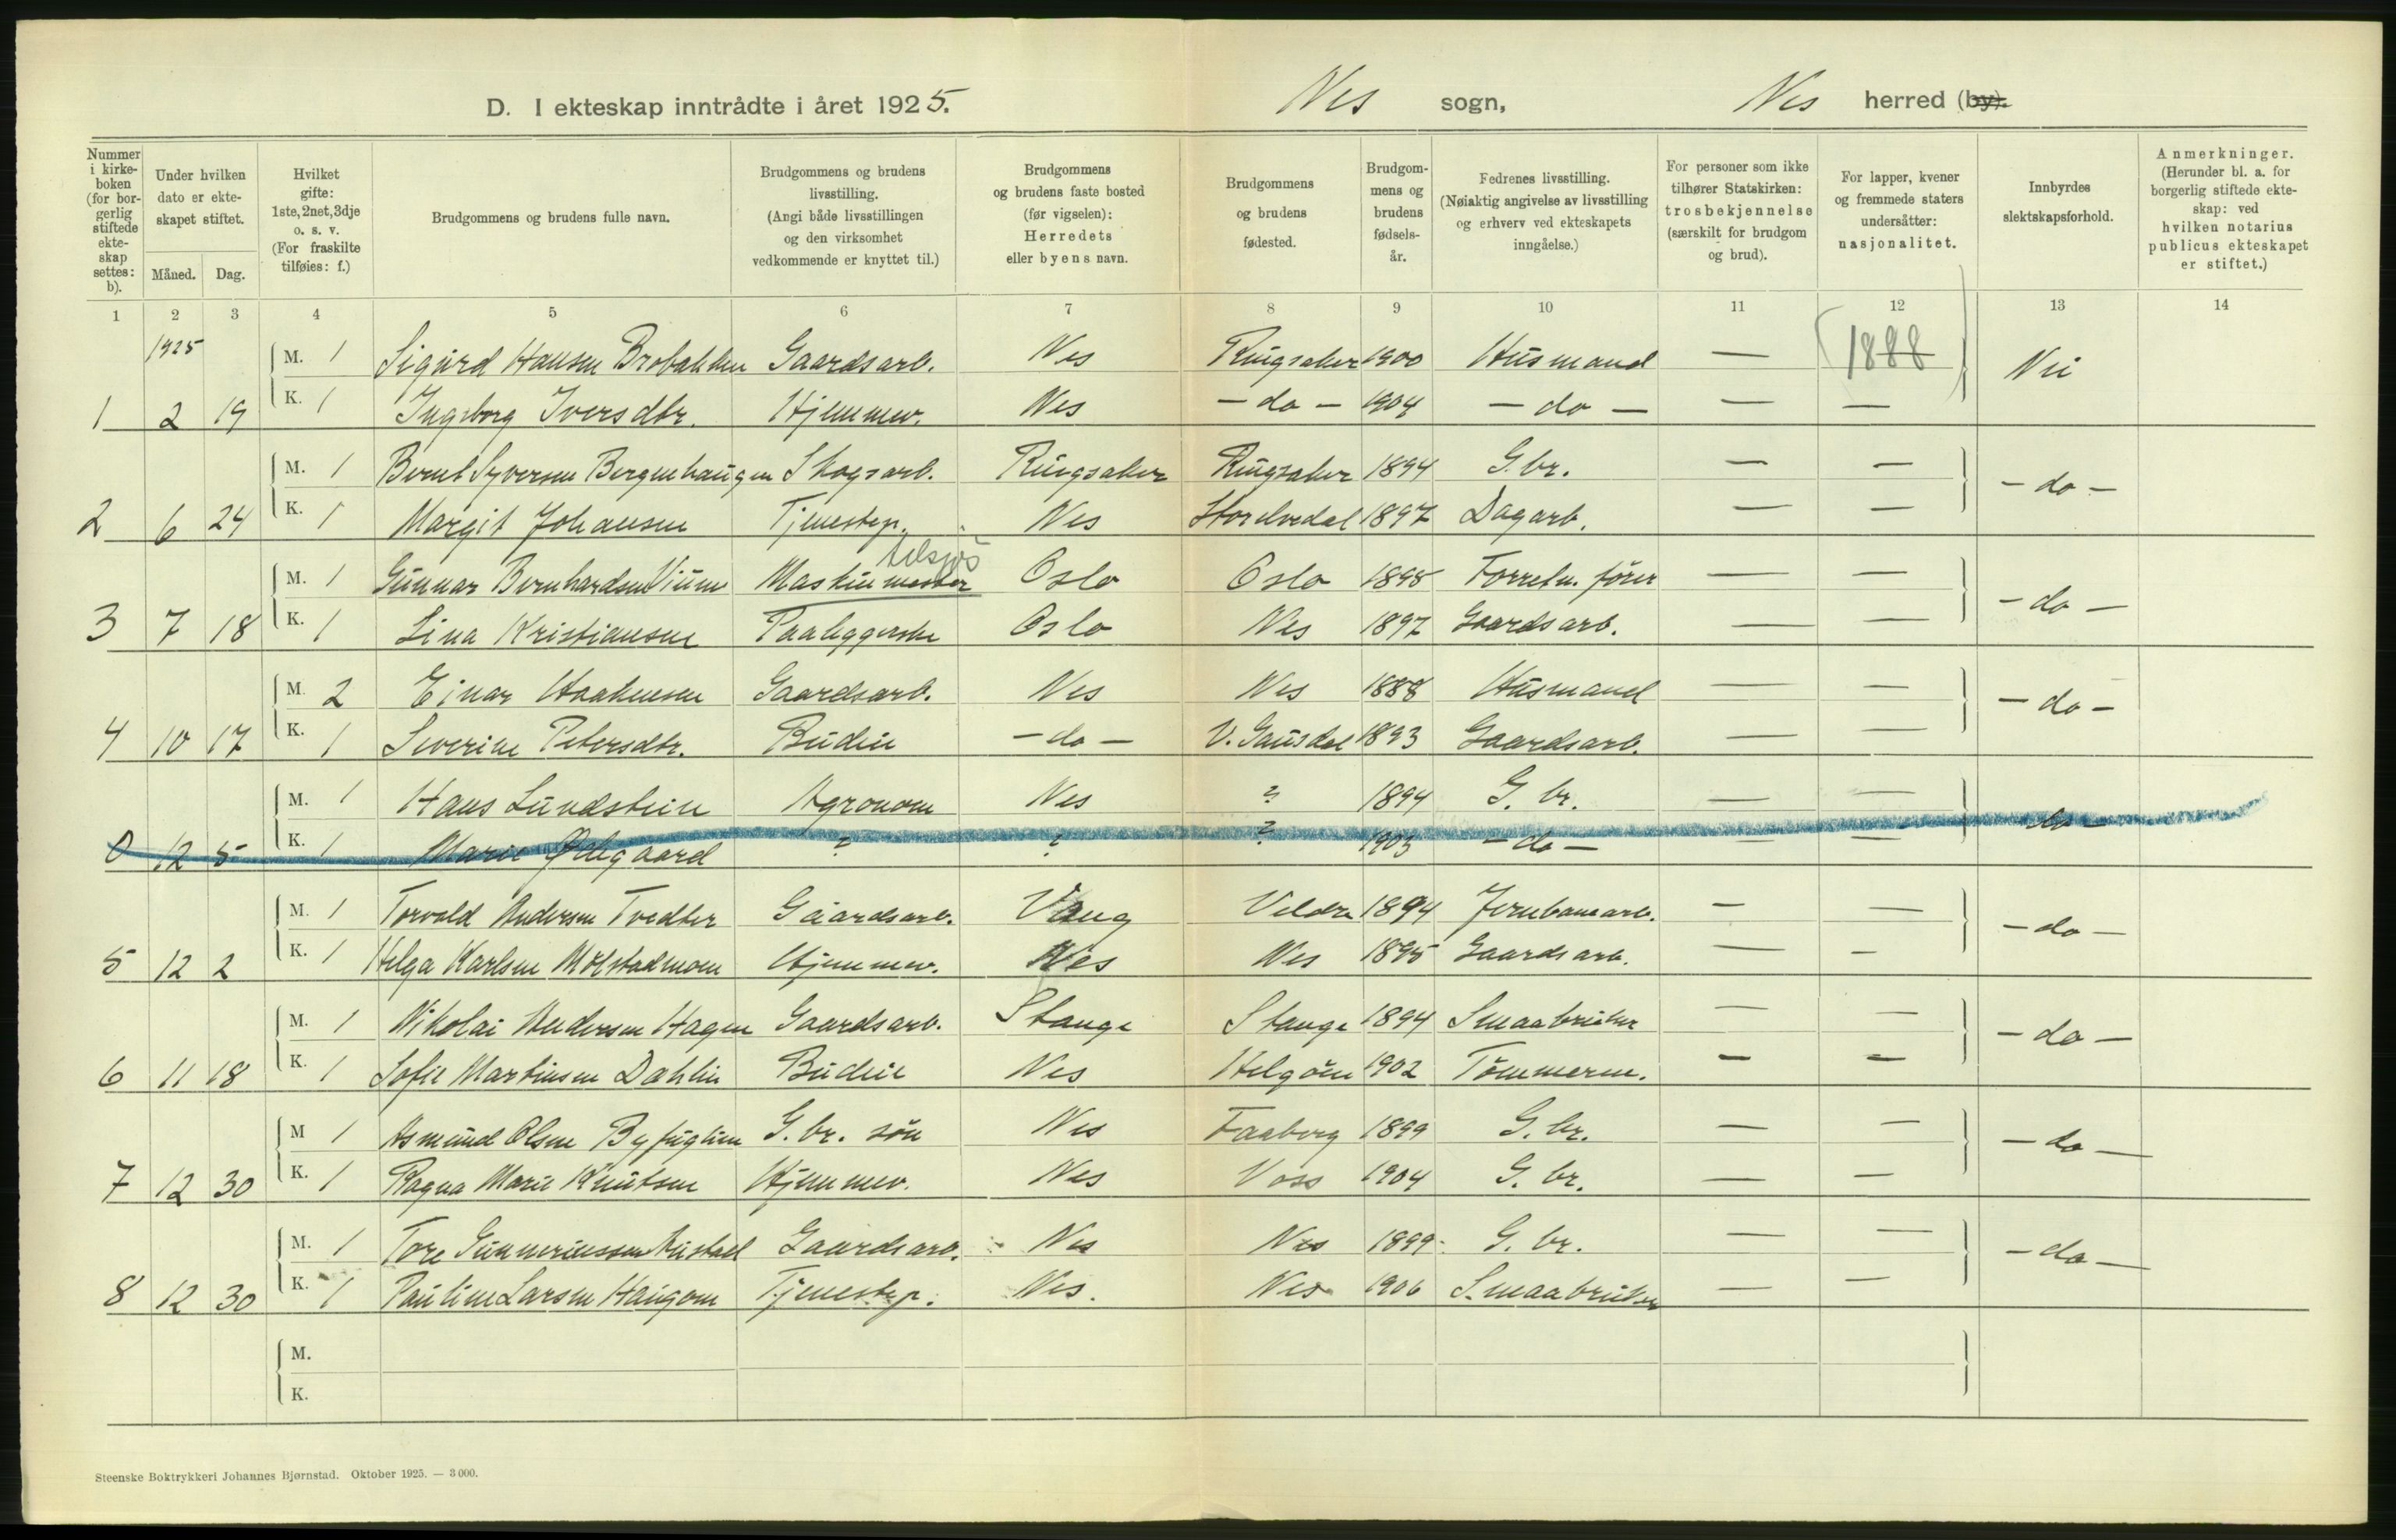 D. I ekteskap inntrådte i året 1925. Nes sogn, Nes herred (by).
Nummer i kirke-boken (for bor-gerlig stiftede ekte-skap settes: b).
Under hvilken dato er ekte-skapet stiftet.
Måned. Dag.
Hvilket gifte: 1ste, 2net, 3dje o. s. v. (For fraskilte tilføies: f.)
Brudgommens og brudens fulle navn.
Brudgommens og brudens livsstilling. (Angi både livsstillingen og den virksomhet vedkommende er knyttet til.)
Brudgommens og brudens faste bosted (før vigselen): Herredets eller byens navn.
Brudgommens og brudens fødested.
Brudgom-mens og brudens fødsels-år.
Fedrenes livsstilling. (Nøiaktig angivelse av livsstilling og erhverv ved ekteskapets inngåelse.)
For personer som ikke tilhører Statskirken: trosbekjennelse (særskilt for brudgom og brud).
For lapper, kvener og fremmede staters undersåtter: nasjonalitet.
Innbyrdes slektskapsforhold.
Anmerkninger. (Herunder bl. a. for borgerlig stiftede ekte-skap: ved hvilken notarius publicus ekteskapet er stiftet.)
1 2 3 4 5 6 7 8 9 10 11 12 13 14
1925 M. 1 Sigurd Hansen Brobakken Gaardsarb. Nes Ringsaker 1900 Husmand — 1888 Nei
1 2 19 K. 1 Ingeborg Iversdtr. Hjemmev. Nes - do - 1904 - do - — —
M. 1 Bernt Syversen Bergenhaugen Skogsarb. Ringsaker Ringsaker 1894 G.br. — — - do -
2 6 24 K. 1 Margit Johansen Tjenestep. Nes Storelvedal 1897 Dagarb. — —
tilsjøs
M. 1 Gunnar Bernhardsen Maskinmester Oslo Oslo 1898 Forretn. fører — — - do -
3 7 18 K. 1 Lina Kristiansen Paaleggerske Oslo Nes 1897 Gaardsarb. — —
M. 2 Einar Haakensen Gaardsarb. Nes Nes 1888 Husmand — — - do -
4 10 17 K. 1 Severine Petersdtr. Budeie - do - V. Gausdal 1893 Gaardsarb. — —
M. 1 Hans Lundstein Agronom Nes ? 1894 G. br. — — - do -
0 12 5 K. 1 Marie Ødegaard ? ? ? 1903 - do - — —
M. 1 Torvald Andersen Tvedter Gaardsarb. Vang Veldre 1894 Jernbanearb. — — - do -
5 12 2 K. 1 Helga Karlsen Molstadmoen Hjemmev. Nes Nes 1895 Gaardsarb. — —
M. 1 Nikolai Andersen Hagen Gaardsarb. Stange Stange 1894 Smaabruker — — - do -
6 11 18 K. 1 Sofie Martinsen Dahlin Budeie Nes Helgøen 1902 Tømmerm. — —
M 1 Asmund Olsen Byfuglien G. br. søn Nes Faaberg 1899 G. br. — — - do -
7 12 30 K. 1 Ragna Marie Knutsen Hjemmev. Nes Voss 1904 G. br. — —
M. 1 Tore Gunneriussen Gaardsarb. Nes Nes 1899 G. br. — — - do -
8 12 30 K. 1 Pauline Larsen Haugom Tjenestep. Nes. Nes 1906 Smaabruker — —
M.
K.
Steenske Boktrykkeri Johannes Bjørnstad. Oktober 1925. — 3 000.